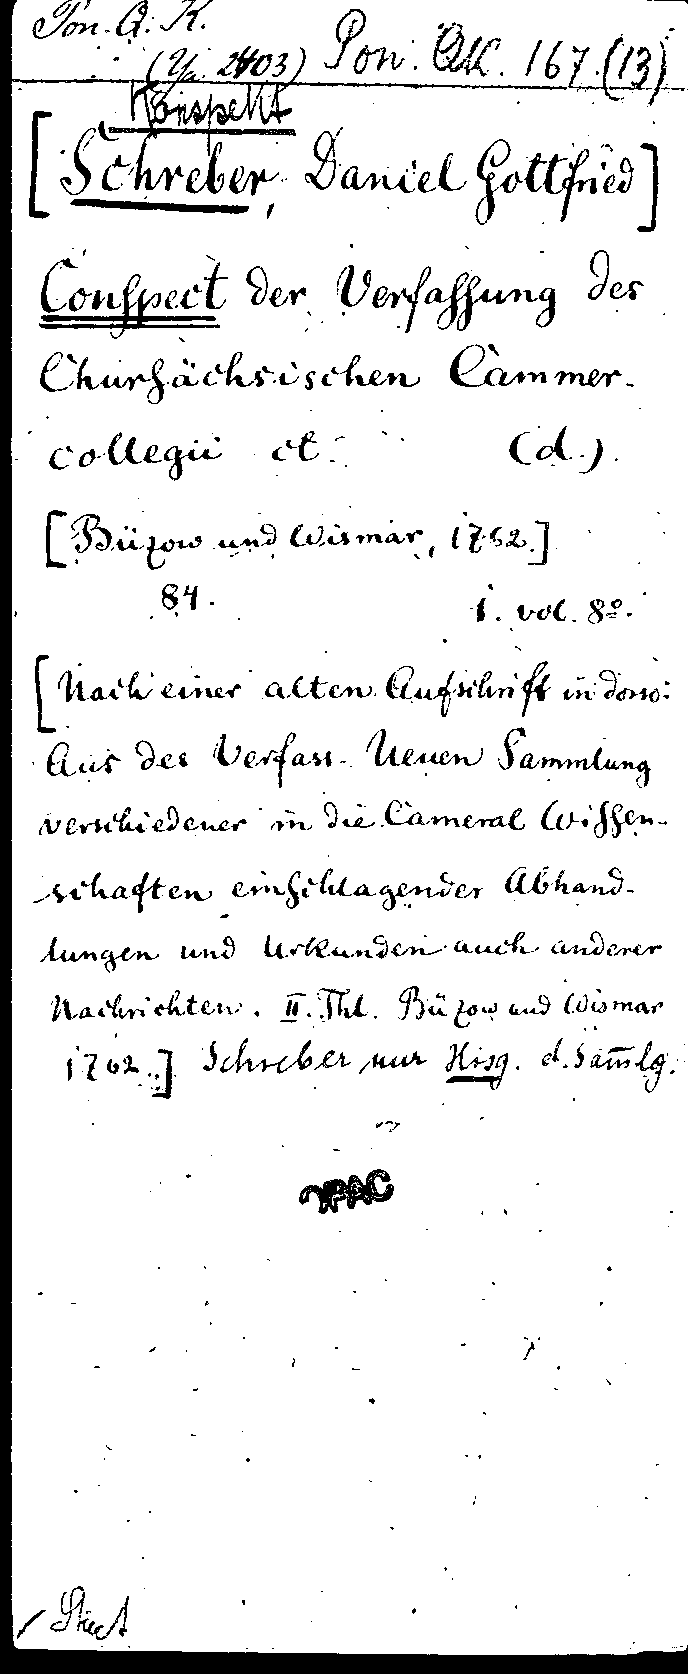 Pon. Q. K.
(Ya 2403) Pon. QK. 167.(13)
Konspekt
[Schreber, Daniel Gottfried]
Conspect der Verfassung des
Chursächsischen Cammer-
collegii et. (d.).
[Büzow und Wismar, 1762.]
84. 1. vol. 8º.
[Nach einer alten Aufschrift in dorso:
Aus des Verfass. Neuen Sammlung
verschiedener in die Cameral Wissen-
schaften einschlagender Abhand-
lungen und Urkunden auch anderer
Nachrichten. II. Thl. Büzow und Wismar
1762.] Schreber nur Hrsg. d. Samlg.
OPAC